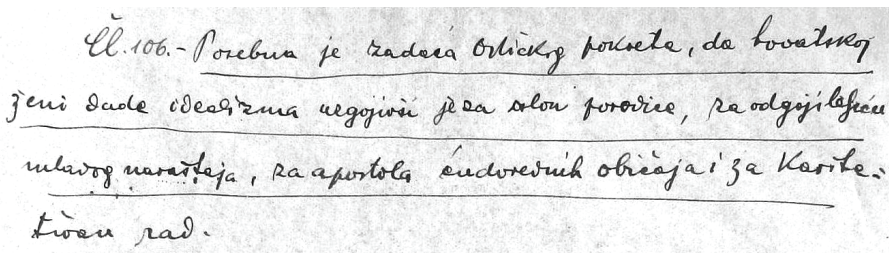 Čl. 106.- Posebna je zadaća Orličkog pokreta, da hrvatskoj
ženi dade idealizma uzgojivši je za slou porodice, za odgojiteljicu
mladog naraštaja, za apostola ćudorednih običaja i za Karita-
tivan rad.